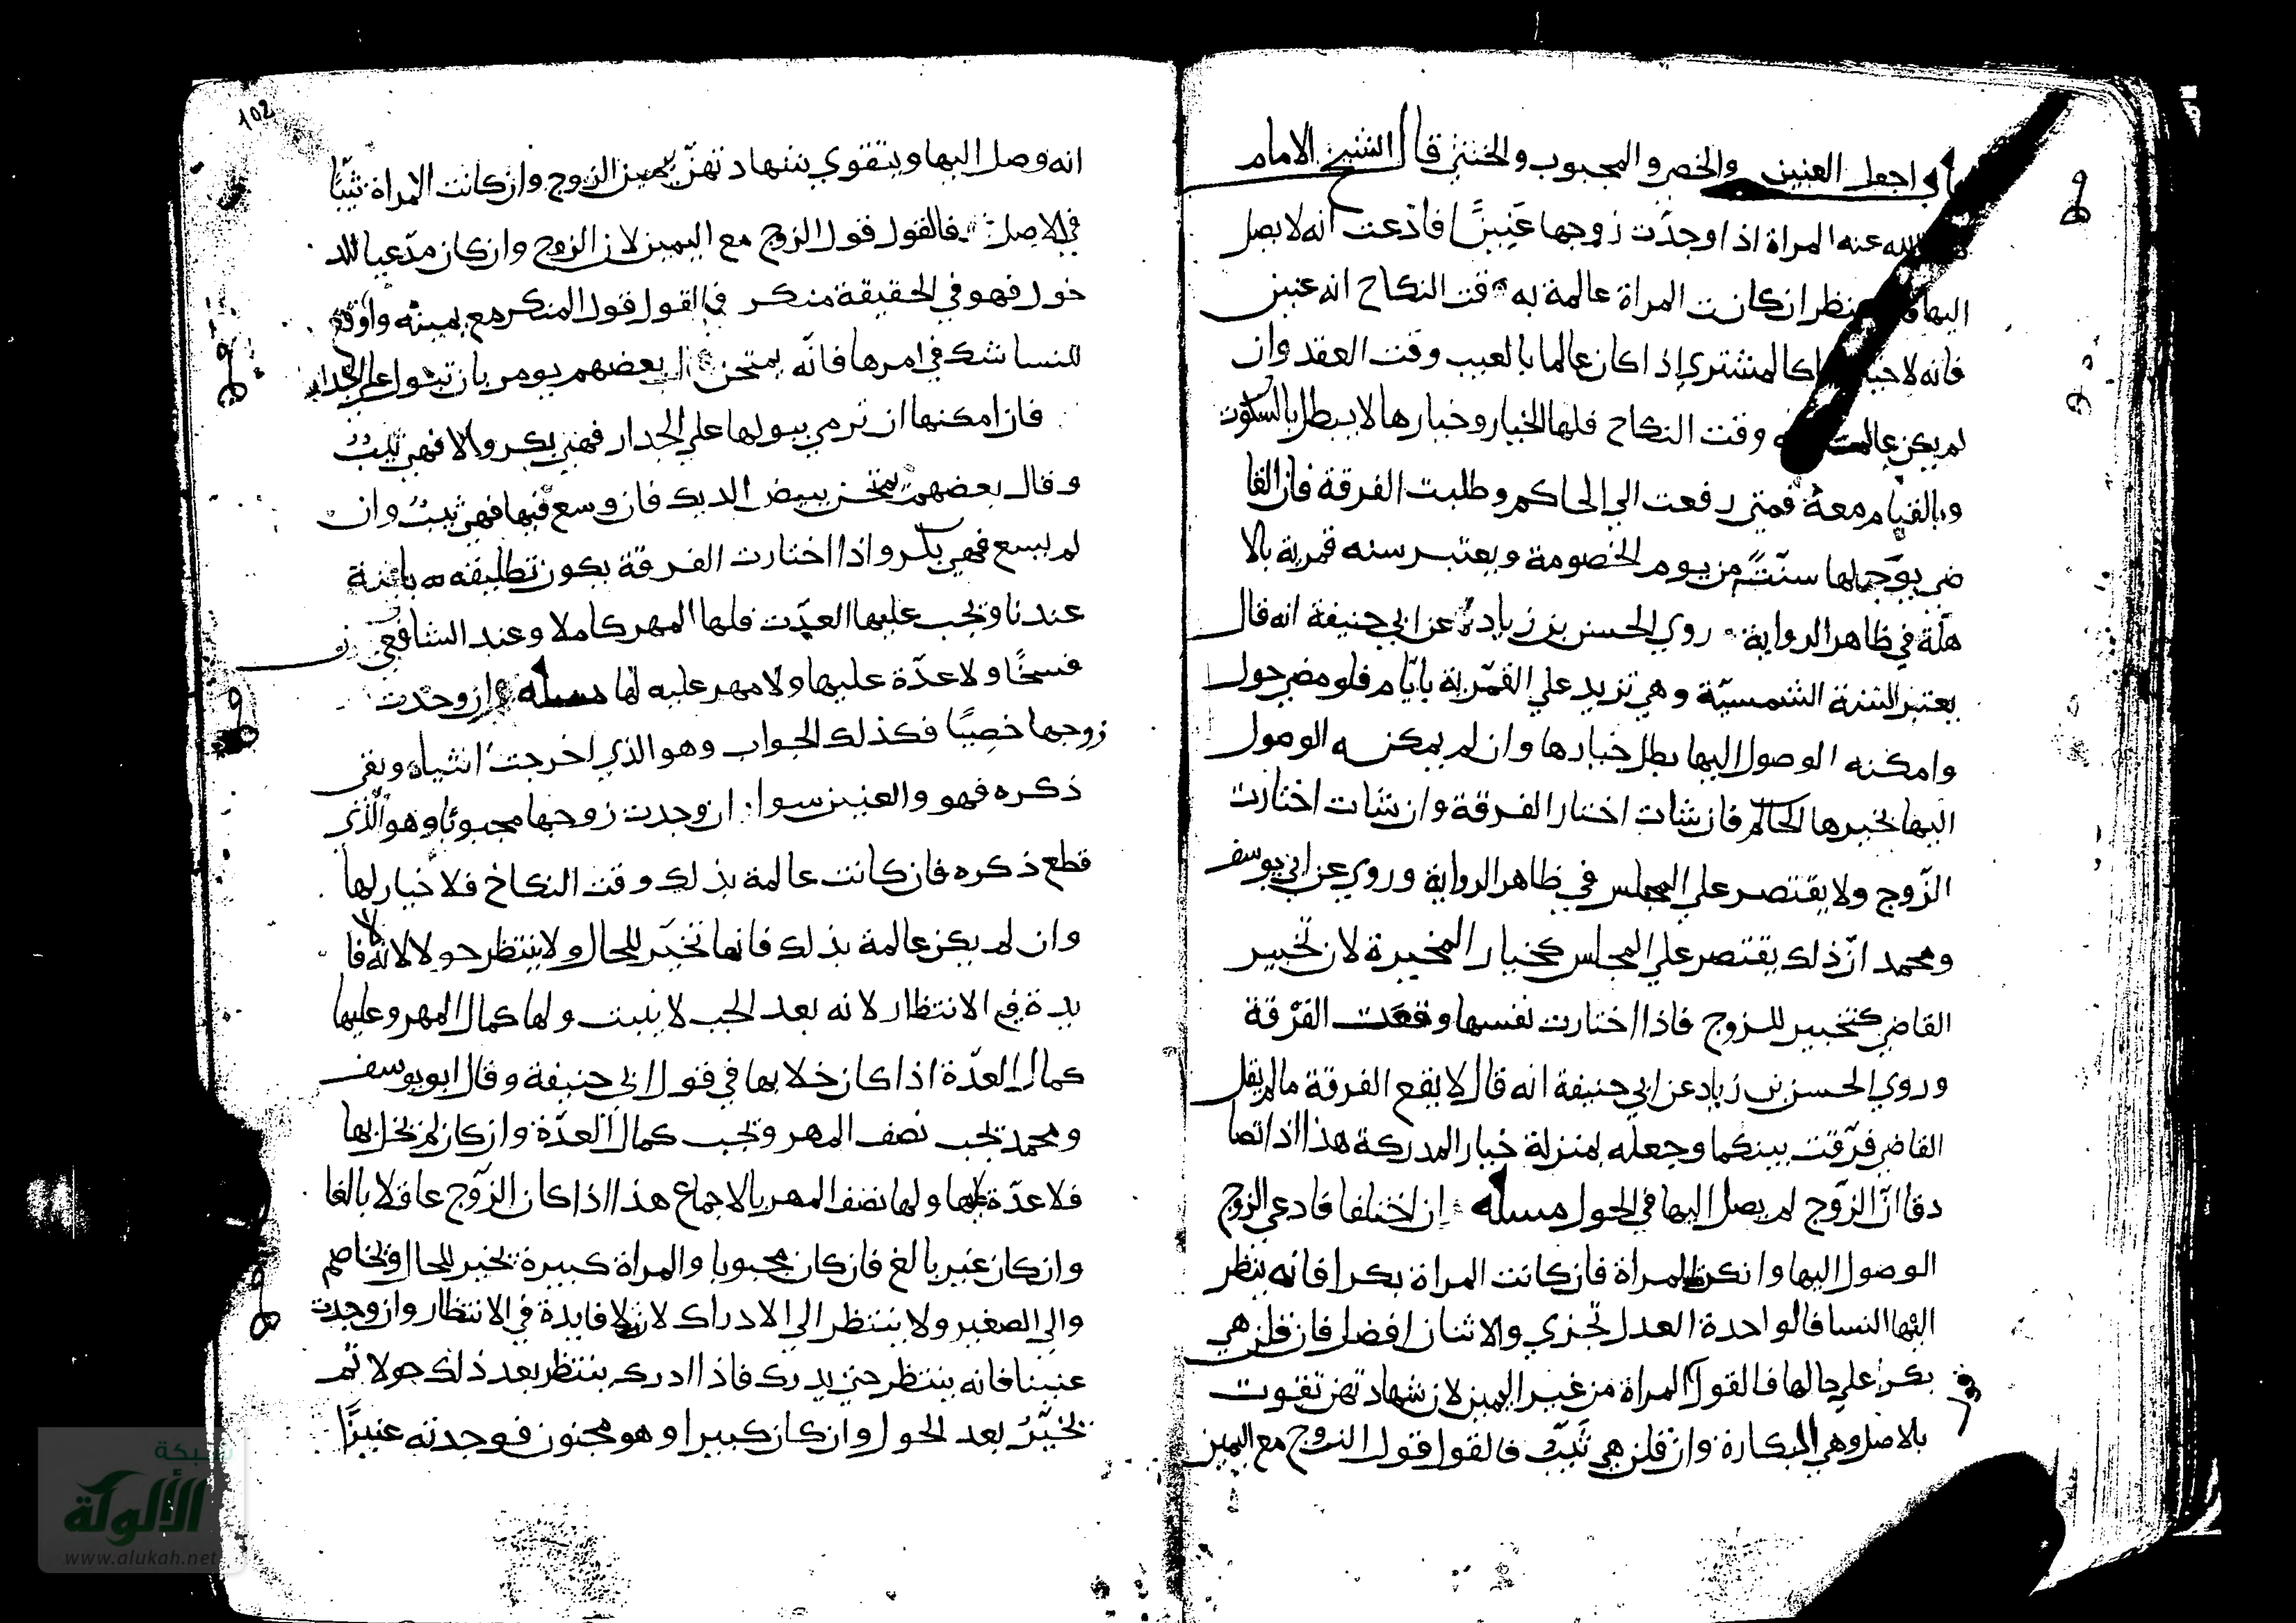 باب اجل العنين والخصي والمجبوب والخنثي قال الشيخ الامام
الله عنه المراة اذا وجدت زوجها عنينًا فادعت انه لا يصل
اليها ينظر ان كانت المراة عالمة به وقت النكاح انه عنين
فانه لا كالمشتري اذا كان عالما بالعيب وقت العقد وان
لم يكن عالمت وقت النكاح فلها الخيار وخيارها لا يبطل بالسكوت
وبالقيام معه فمتي رفعت الي الحاكم وطلبت الفرقة فان القا
ضي يوجلها سنتً من يوم الخصومة ويعتبر سنه قمرية بالا
هلّة في ظاهر الرواية روي الحسن بن زياد عن ابي حنيفة انه قال
يعتبر السنة الشمسيّة وهي تزيد علي القمّرية بايّام فلو مضي حول
وامكنه الوصول اليها بطل خيارها وان لم يمكنه الوصول
اليها يخيرها الحاكم فان شات اختار الفرقة وان شات اختارت
الزّوج ولا يقتصر علي المجلس في ظاهر الرواية وروي عن ابي يوسف
ومحمد انّ ذلك يقتصر علي المجلس كخيار المخيرة لان تخيير
القاضي كتخيير للزوج فاذا اختارت نفسها وقعت الفرقة
وروي الحسن بن زياد عن ابي حنيفة انه قال لا يقع الفرقة ما لم يقل
القاضي فرّقت بينكما وجعله بمنزلة خيار المدركة هذا اذا تصا
دقا انّ الزّوج لم يصل اليها في الحول مسله ان اختلفا فادعي الزوج
الوصول اليها وانكرت المراة فان كانت المراة بكرا فانه ينظر
اليها النسا فالواحدة العدل تجزي والاثنان افضل فان قلن هي
بكر علي حالها فالقول المراة من غير اليمين لان شهادتهن تقوت
بالاصل وهي البكارة وان قلن هي ثيب فالقول قول الزوج مع اليمين
102
انه وصل اليها ويتقوي بشهادتهنّ يمين الزوج وان كانت المراة ثيّبًا
في الاصل فالقول قول الزوج مع اليمين لان الزوج وان كان مدّعيا للد
خول فهو في الحقيقة منكر في القول قول المنكر مع يمينه واوقع
للنسا شك في امرها فانّه يمتحن بعضهم يومر بان تبول علي الجدار
فان امكنها ان ترمي ببولها علي الجدار فهي بكر والا فهي ثيب
وقال بعضهم يمتحن ببيض الديك فان وسع فيها فهي ثيب وان
لم يسع فهي بكر واذا اختارت الفرقة يكون تطليقه باينة
عندنا وتجب عليها العدّت فلها المهر كاملا وعند الشافعي
فسخًا ولا عدّة عليها ولا مهر عليه لها مسله ان وجدت
زوجها خصيًا فكذلك الجواب وهو الذي اخرجت انثياه وبقي
ذكره فهو والعنين سوا ان وجدت زوجها مجبوبًا وهو الّذي
قطع ذكره فان كانت عالمة بذلك وقت النكاح فلا خيار لها
وان لم يكن عالمة بذلك فانها تخيّر للحال ولا ينتظر حولا لانه لا فا
يدة في الانتظار لانه بعد الجب لا ينبت ولها كمال المهر وعليها
كمال العدّة اذا كان خلا بها في قول ابي حنيفة وقال ابو يوسف
ومحمد تجب نصف المهر وتجب كمال العدّة وان كان لم يخل بها
فلا عدّة عليها ولها نصف المهر بالاجماع هذا اذا كان الزّوج عاقلا بالغا
وان كان غير بالغ فان كان مجبوبا والمراة كبيرة تخير للحال وتخاصم
والي الصغير ولا ينتظر الي الادراك لانه لا فايدة في الانتظار وان وجدت
عنينا فانه ينتظر حتي يدرك فاذا ادرك ينتظر بعد ذلك حولا ثم
تخيّر بعد الحول وان كان كبيرا وهو مجنون فوجدته عنينًا
شبكة
الألوكة
www.alukah.net